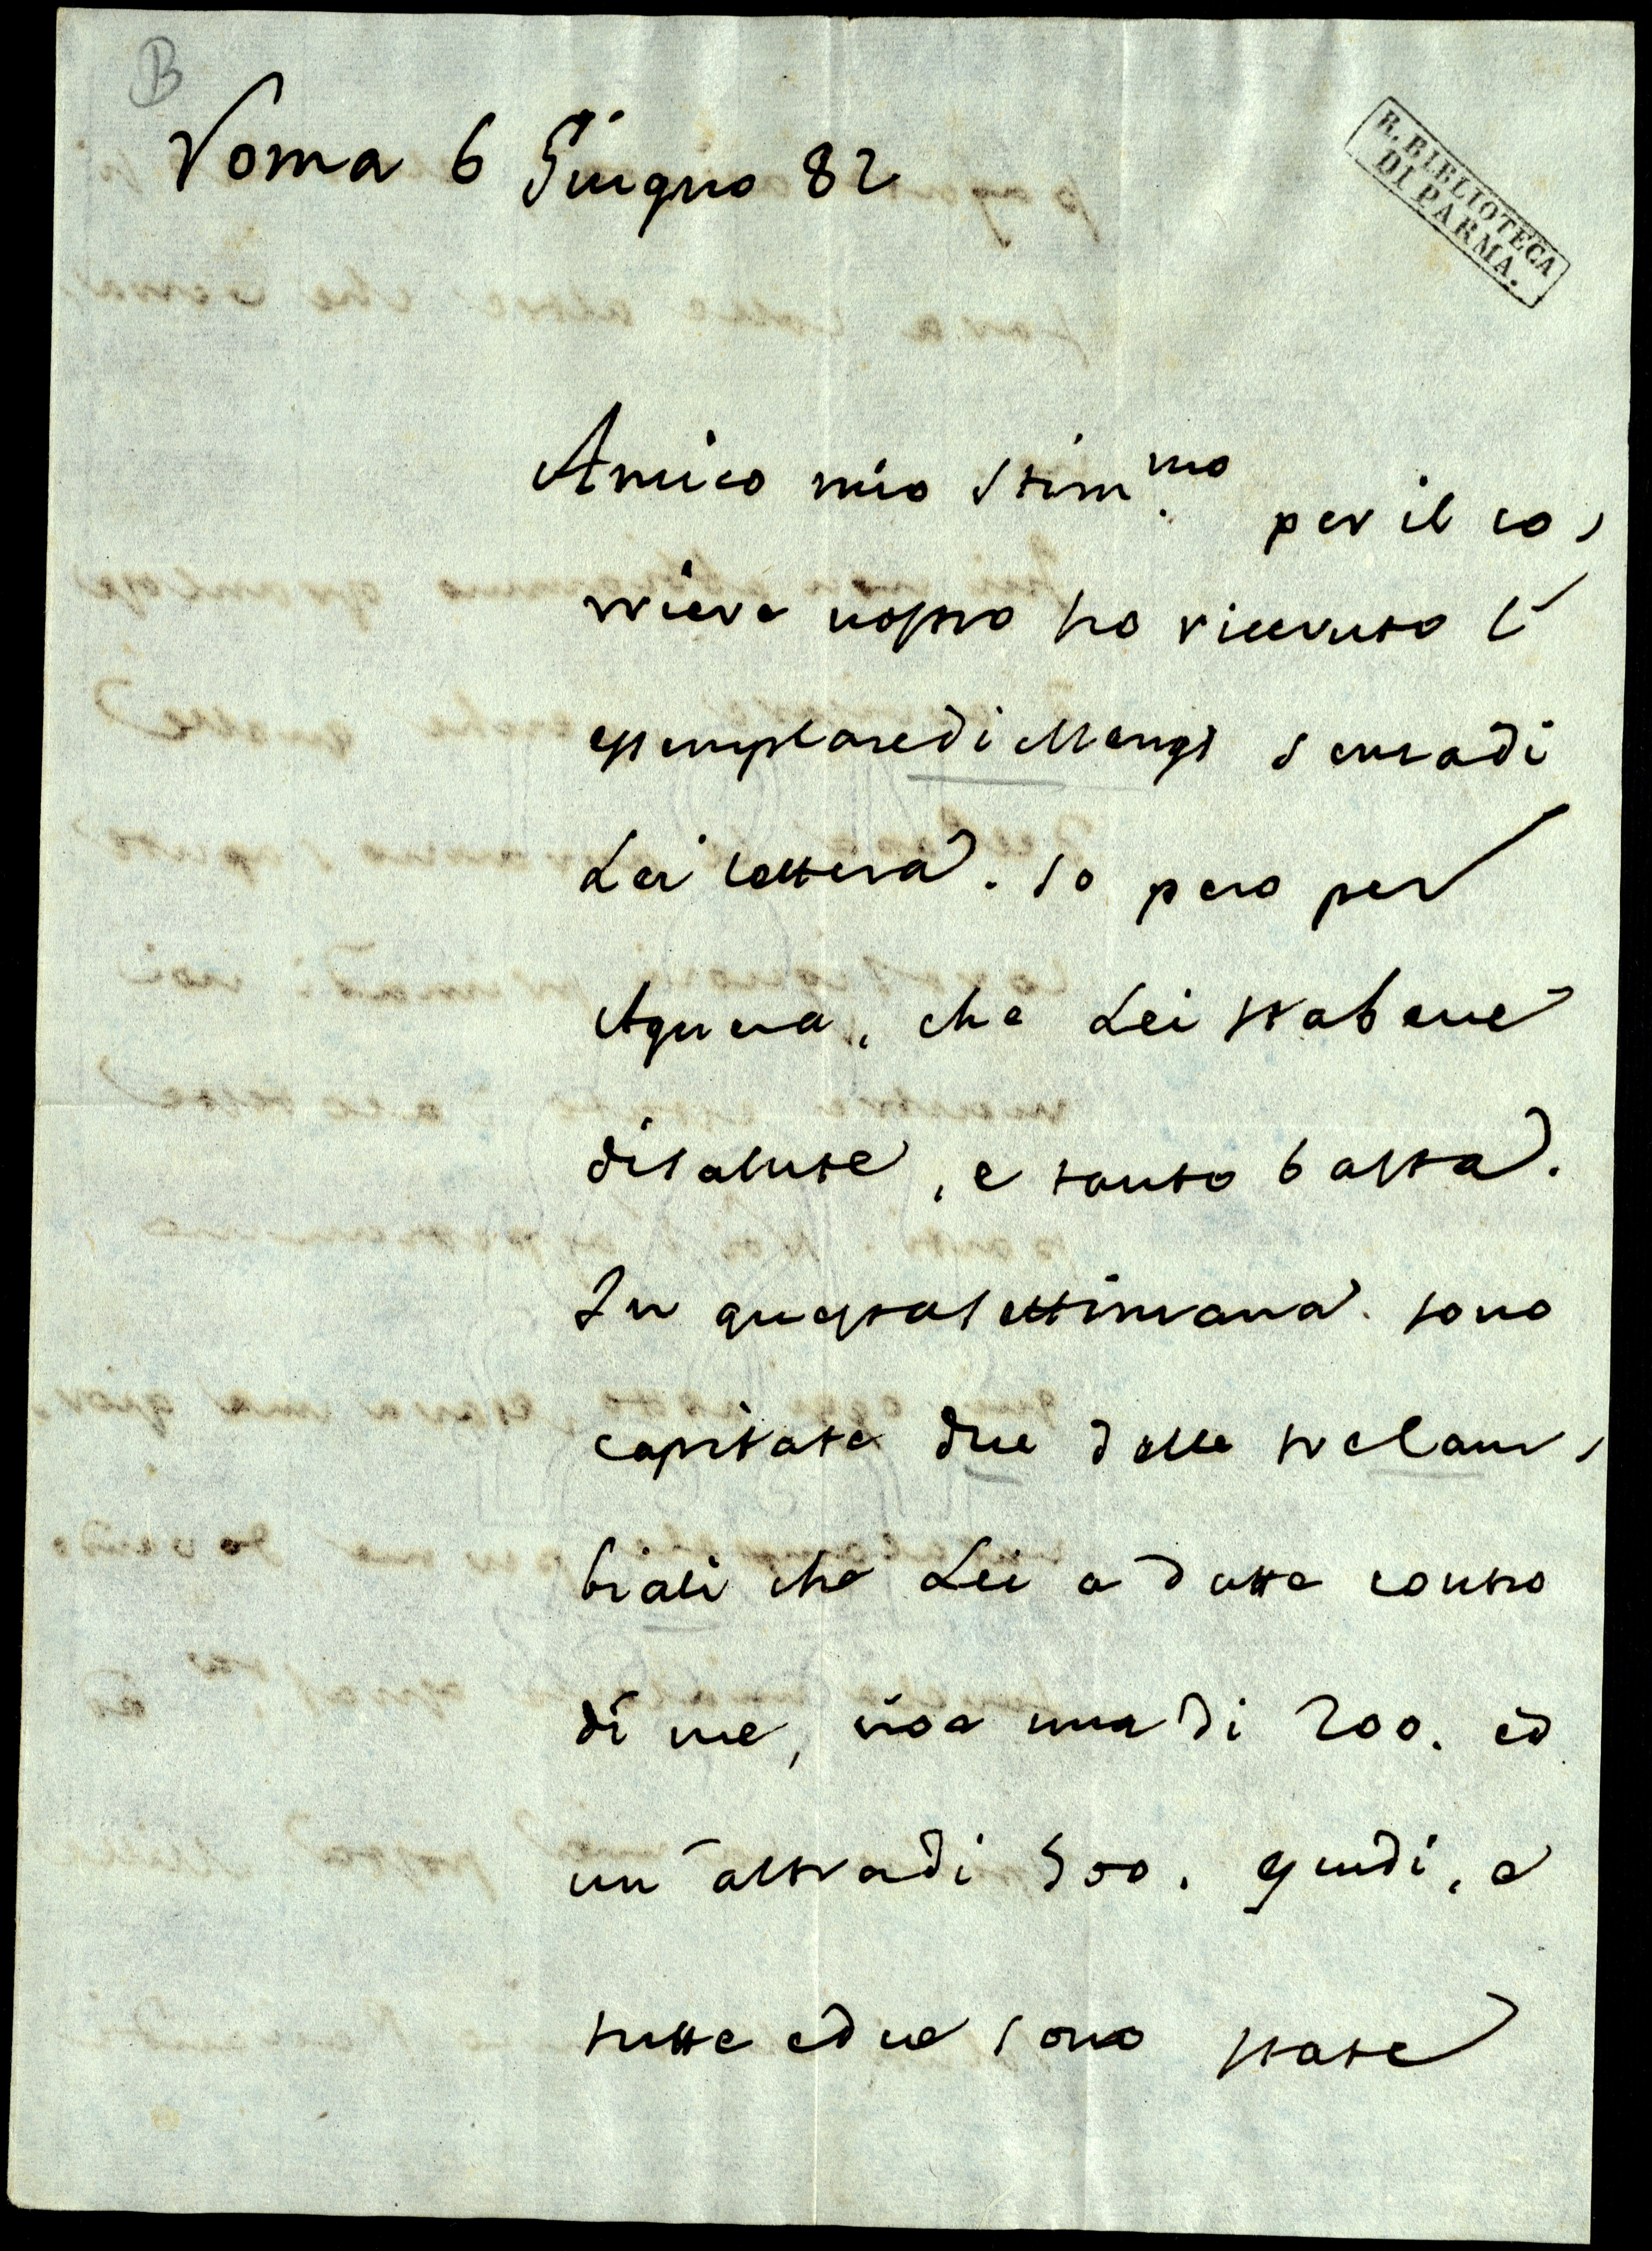 B
R. BIBLIOTECA
DI PARMA.
Roma 6 Giugno 82
Amico mio stim.mo per il co,
rriere nostro ho ricevuto l'
essemplare di Mengs senza di
Lei lettera. So pero per
Azara, che Lei sta bene
di salute, e tanto basta.
In questa settimana sono
capitate due delle tre Cam,
biali che Lei a datte contro
di me, cioe una di 200. ed
un'altra di 500. scudi, e
tutte e due sono state